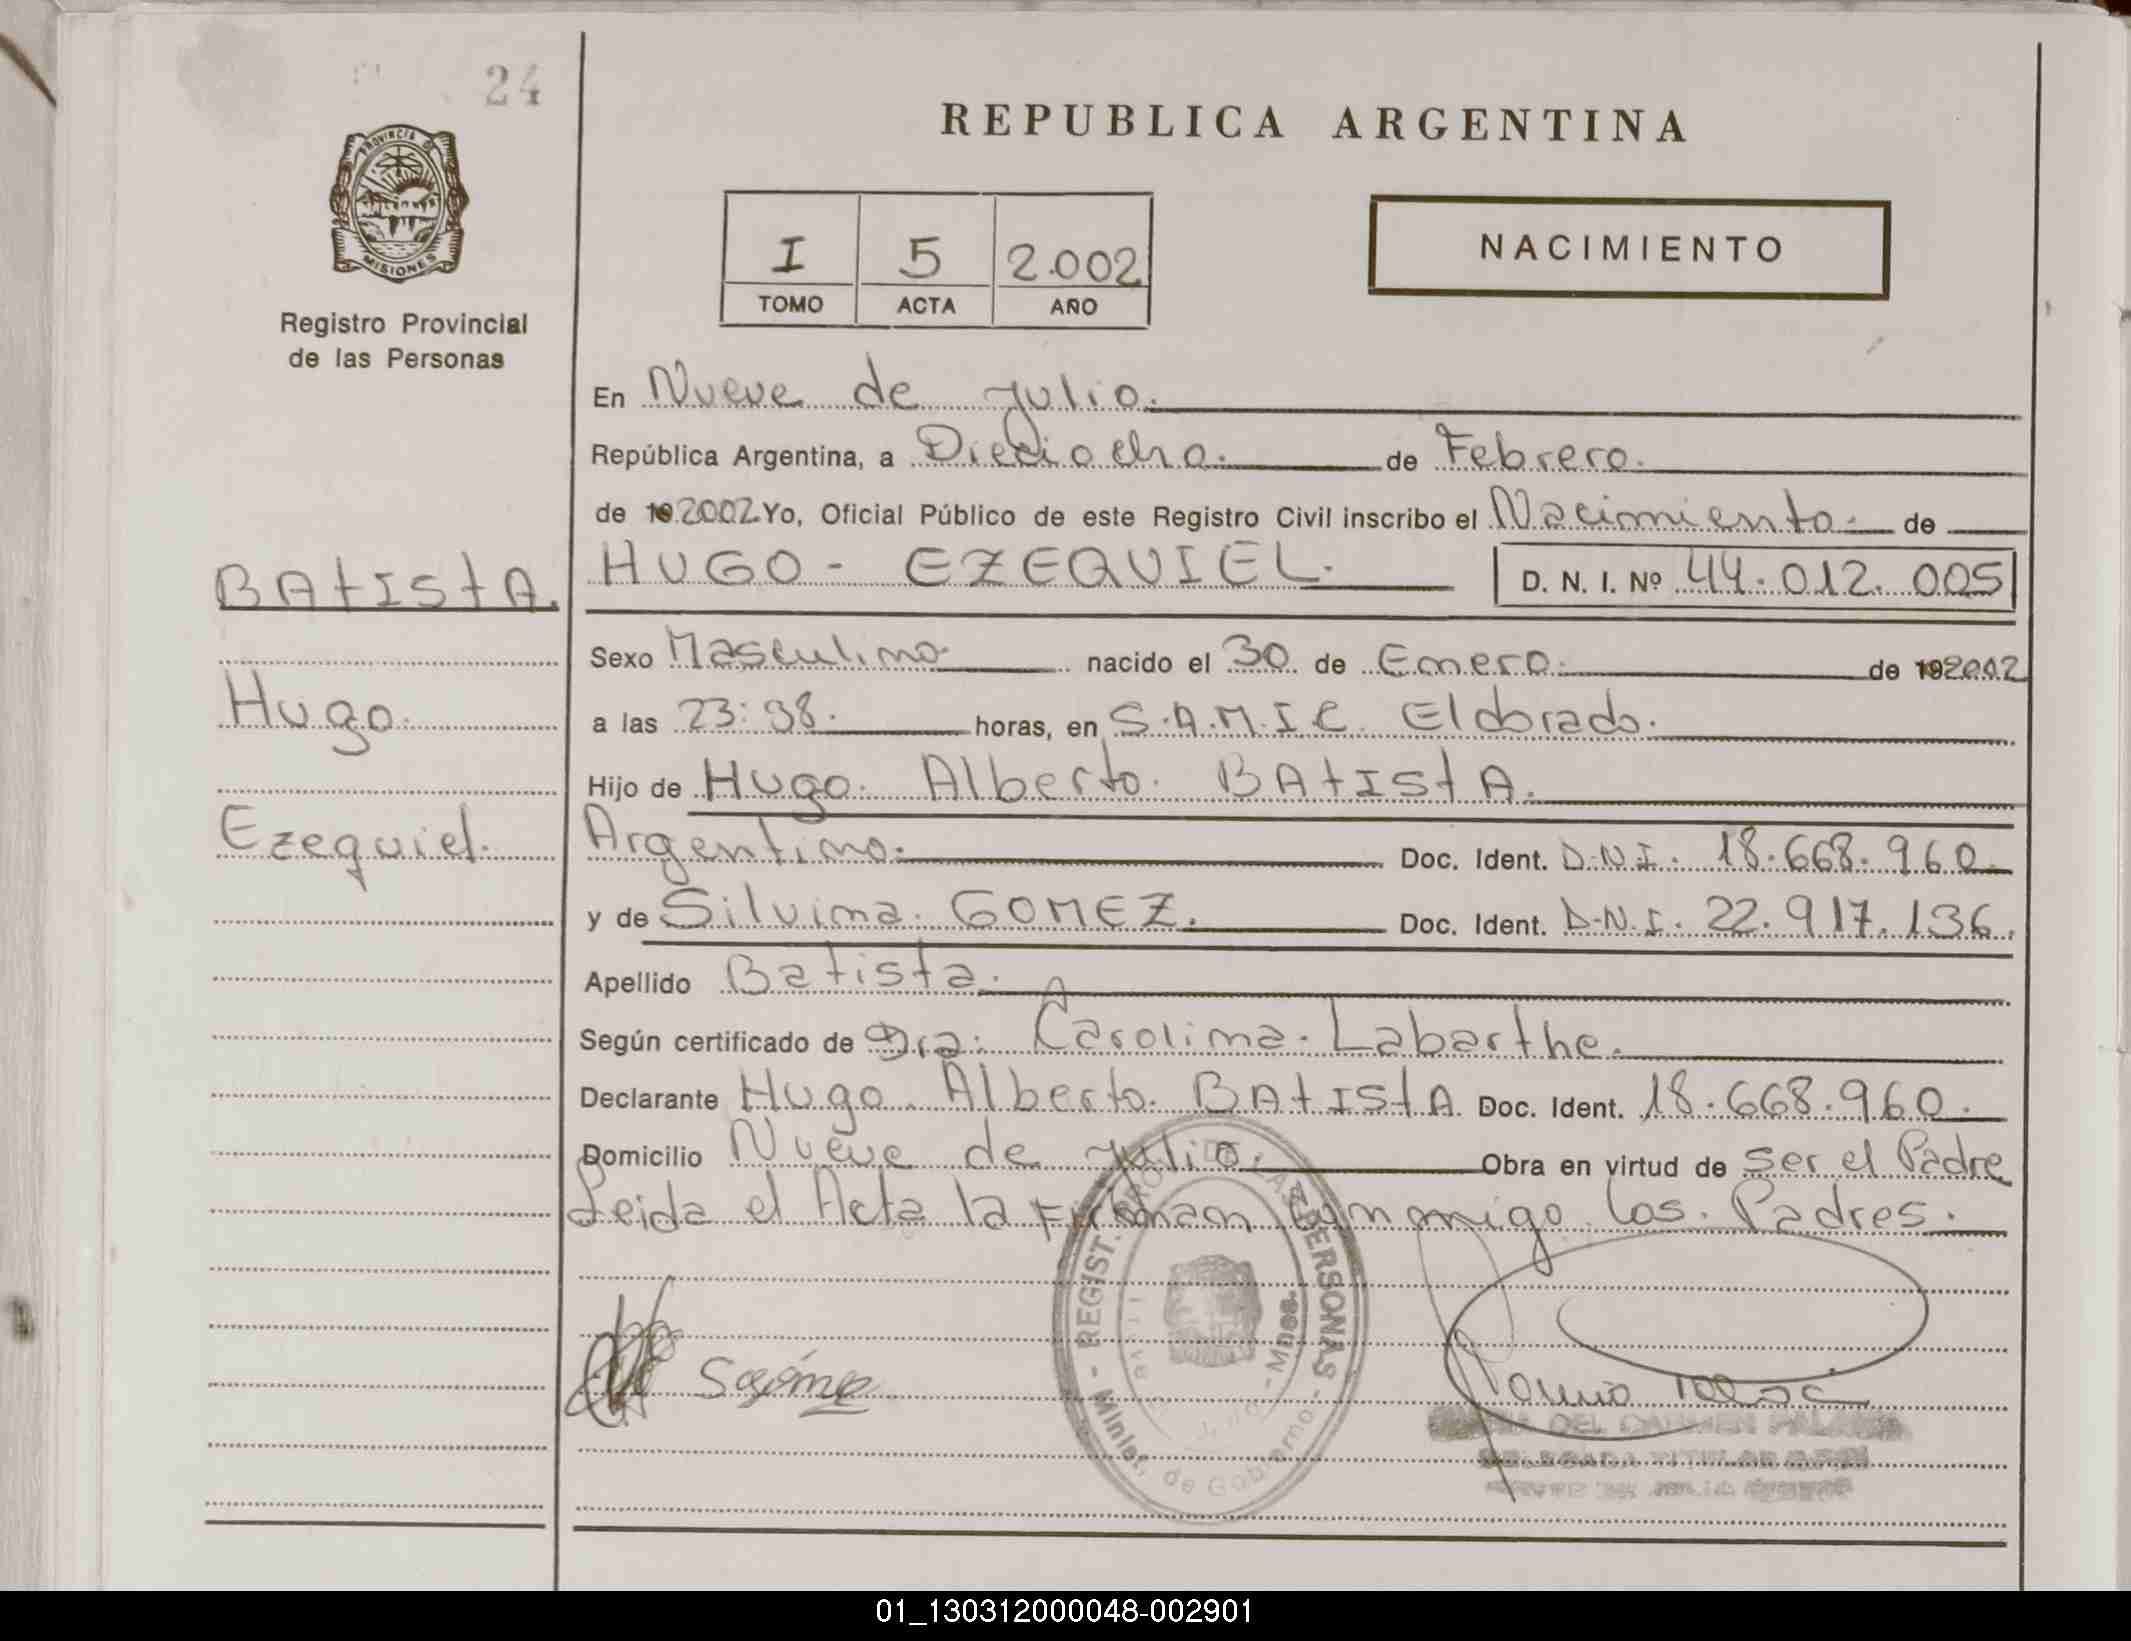 24
PROVINCIA DE
MISIONES
Registro Provincial
de las Personas
REPUBLICA ARGENTINA
I 5 2.002
TOMO ACTA AÑO
NACIMIENTO
En Nueve de Julio.
República Argentina, a Dieciocho. de Febrero.
de 19 2002 Yo, Oficial Público de este Registro Civil inscribo el Nacimiento. de
BATISTA.
HUGO - EZEQUIEL. D. N. I. Nº 44.012.005
Sexo Masculino nacido el 30 de Enero. de 19 2002
Hugo.
a las 23:38. horas, en S.A.M.I.C. Eldorado.
Hijo de Hugo. Alberto. BATISTA.
Ezequiel.
Argentino. Doc. Ident. D.N.I. 18.668.960.
y de Silvina. GOMEZ. Doc. Ident. D.N.I. 22.917.136.
Apellido Batista.
Según certificado de Dra. Carolina. Labarthe.
Declarante Hugo. Alberto. BATISTA Doc. Ident. 18.668.960.
Domicilio Nueve de Julio. Obra en virtud de ser el Padre
Leida el Acta la Firman conmigo los. Padres.
REGIST. PROV. DE LAS PERSONAS - Minist. de Gobierno - Mnes.
DEL CARMEN
DELEGADA TITULAR
01_130312000048-002901